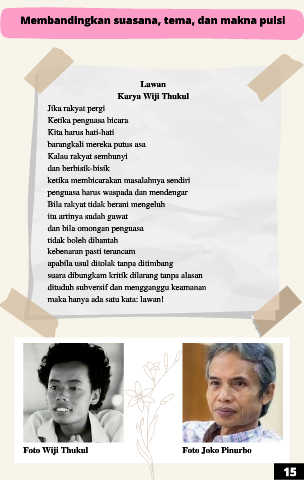 Membandingkan suasana, tema, dan makna puisi
Lawan
Karya Wiji Thukul
Jika rakyat pergi
Ketika penguasa bicara
Kita harus hati-hati
barangkali mereka putus asa
Kalau rakyat sembunyi
dan berbisik-bisik
ketika membicarakan masalahnya sendiri
penguasa harus waspada dan mendengar
Bila rakyat tidak berani mengeluh
itu artinya sudah gawat
dan bila omongan penguasa
tidak boleh dibantah
kebenaran pasti terancam
apabila usul ditolak tanpa ditimbang
suara dibungkam kritik dilarang tanpa alasan
dituduh subversif dan mengganggu keamanan
maka hanya ada satu kata: lawan!
Foto Wiji Thukul
Foto Joko Pinurbo
15